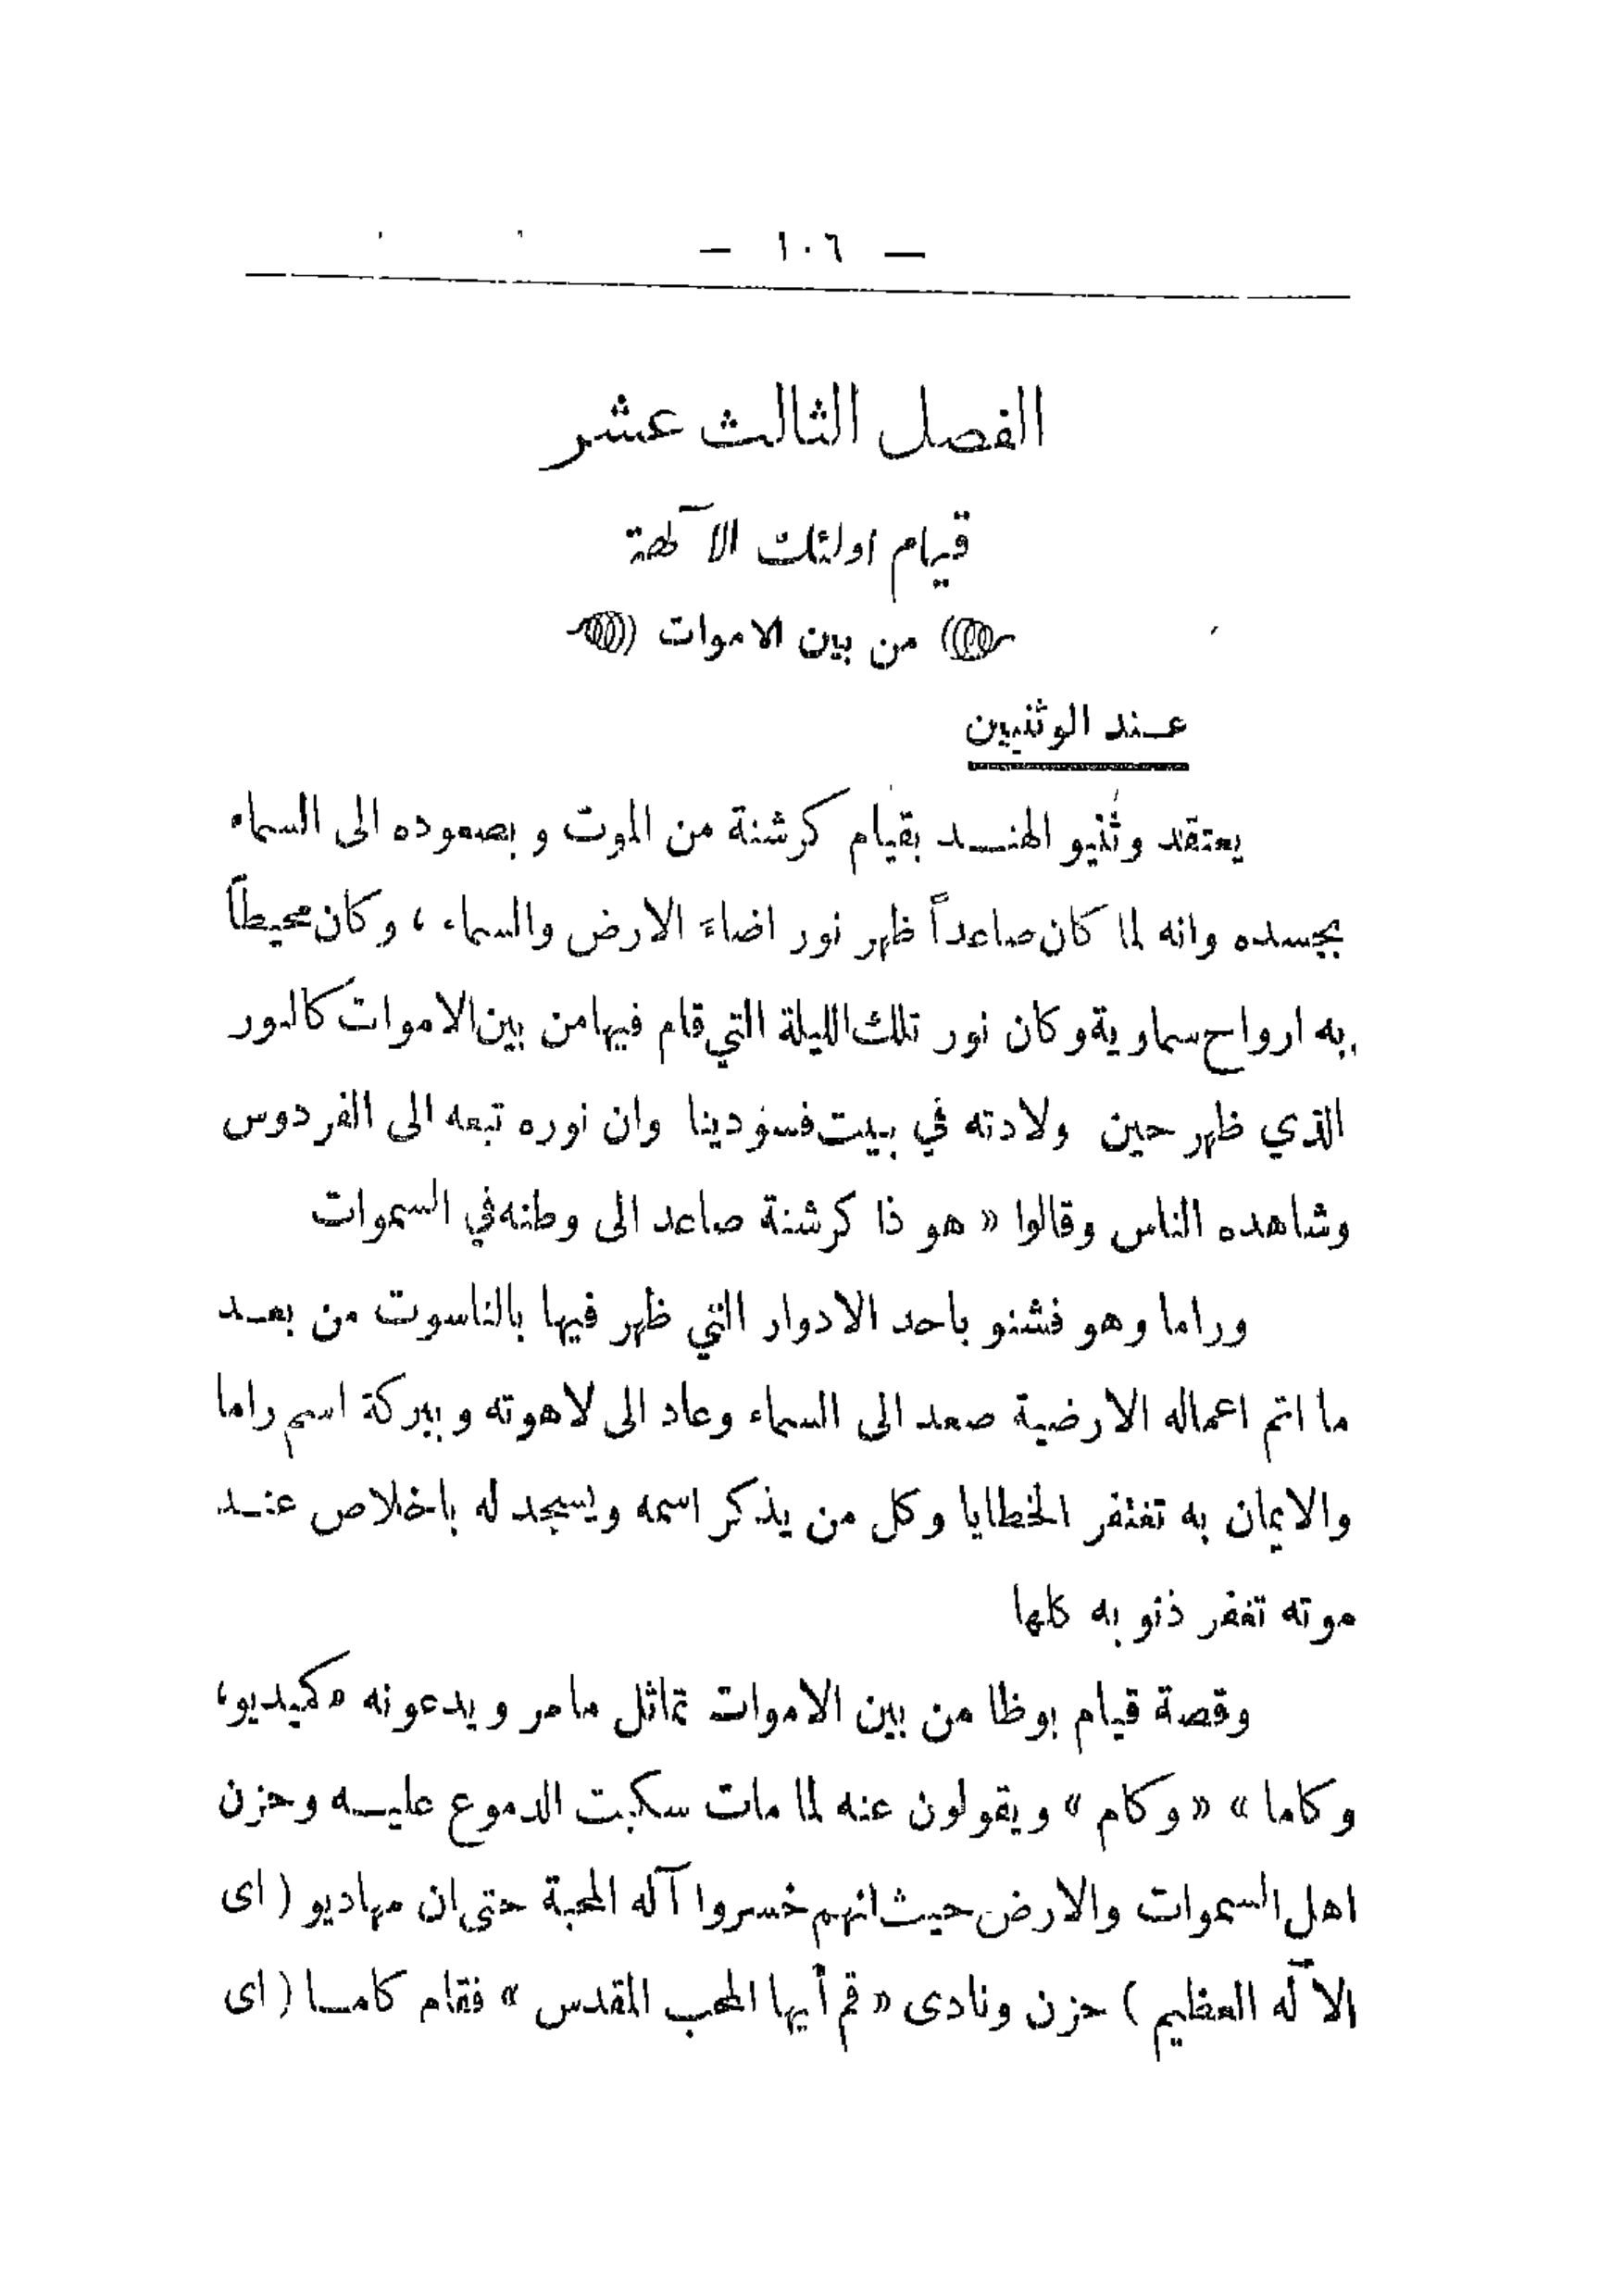 — ١٠٦ —
الفصل الثالث عشر
قيام اولئك الآلهة
من بين الاموات
عند الوثنيين
يعتقد وثنيو الهند بقيام كرشنة من الموت وبصعوده الى السماء
بجسده وانه لما كان صاعداً ظهر نور اضاءَ الارض والسماء ، وكان محيطاً
به ارواح سماوية وكان نور تلك الليلة التي قام فيها من بين الاموات كالنور
الذي ظهر حين ولادته في بيت فسودينا وان نوره تبعه الى الفردوس
وشاهده الناس وقالوا « هو ذا كرشنة صاعد الى وطنه في السموات
وراما وهو فشنو باحد الادوار التي ظهر فيها بالناسوت من بعد
ما اتم اعماله الارضية صعد الى السماء وعاد الى لاهوته وببركة اسم راما
والايمان به تغتفر الخطايا وكل من يذكر اسمه ويسجد له باخلاص عند
موته تغفر ذنوبه كلها
وقصة قيام بوظا من بين الاموات تماثل ما مر ويدعونه «كيديو،
وكاما » «وكام » ويقولون عنه لما مات سكبت الدموع عليه وحزن
اهل السموات والارض حيث انهم خسروا آله المحبة حتى ان مهاديو ( اى
الاآله العظيم ) حزن ونادى « قم أيها المحب المقدس » فقام كاما ( اى